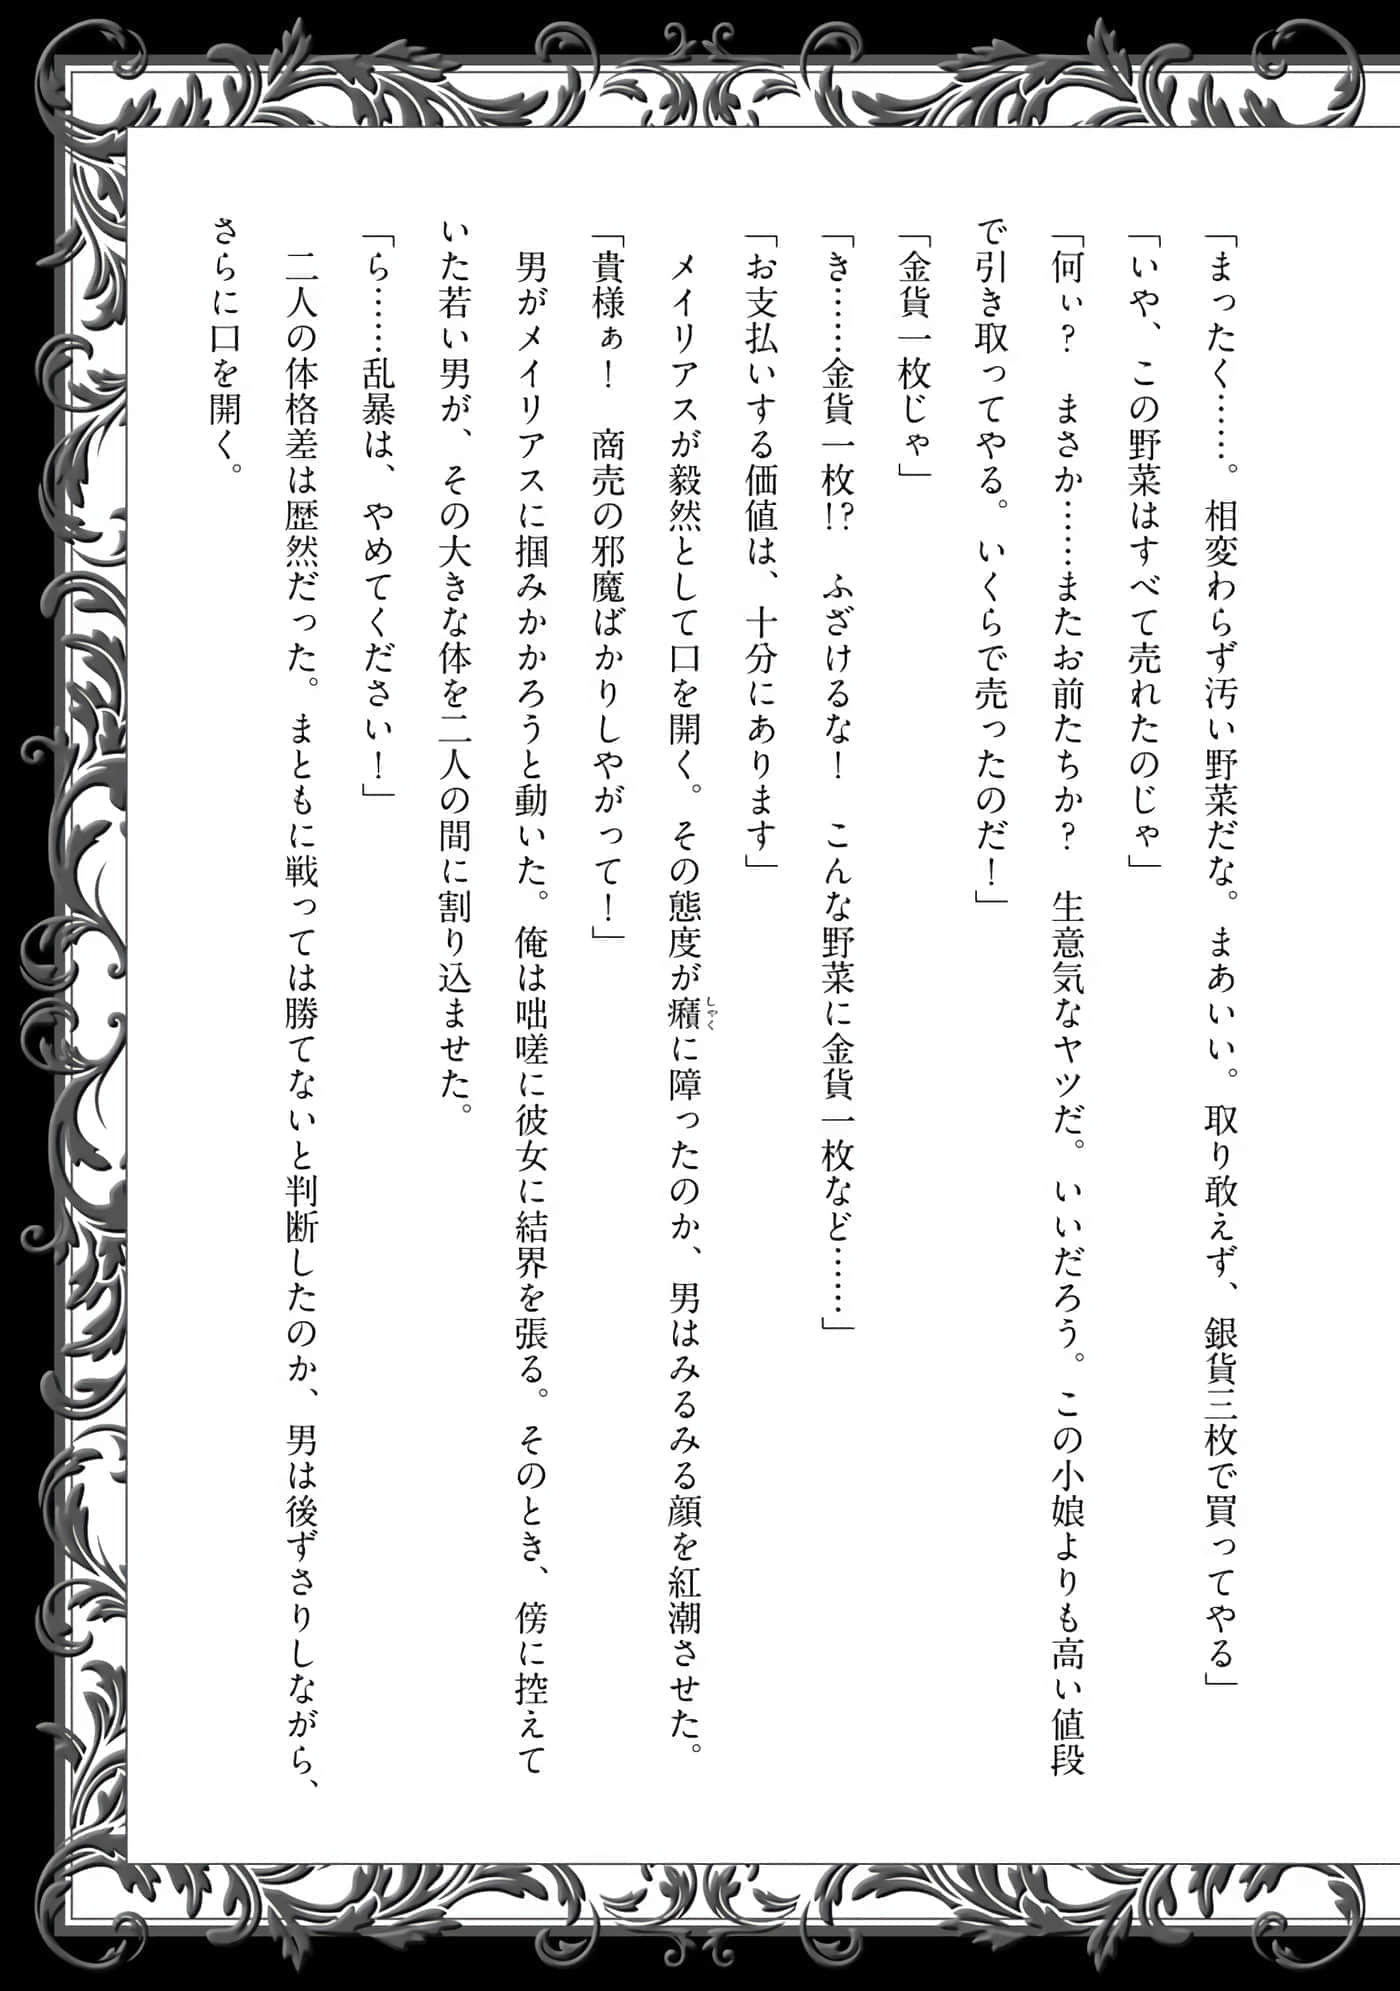 「まったく……。相変わらず汚い野菜だな。まあいい。取り敢えず、銀貨三枚で買ってやる」
「いや、この野菜はすべて売れたのじゃ」
「何ぃ？　まさか……またお前たちか？　生意気なヤツだ。いいだろう。この小娘よりも高い値段
で引き取ってやる。いくらで売ったのだ！」
「金貨一枚じゃ」
「き……金貨一枚!?　ふざけるな！　こんな野菜に金貨一枚など……」
「お支払いする価値は、十分にあります」
　メイリアスが毅然として口を開く。その態度が癪に障ったのか、男はみるみる顔を紅潮させた。
しゃく
「貴様ぁ！　商売の邪魔ばかりしやがって！」
　男がメイリアスに掴みかかろうと動いた。俺は咄嗟に彼女に結界を張る。そのとき、傍に控えて
いた若い男が、その大きな体を二人の間に割り込ませた。
「ら……乱暴は、やめてください！」
　二人の体格差は歴然だった。まともに戦っては勝てないと判断したのか、男は後ずさりしながら、
さらに口を開く。